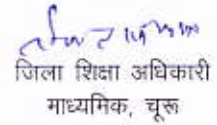 जिला शिक्षा अधिकारी
माध्यमिक, चूरू